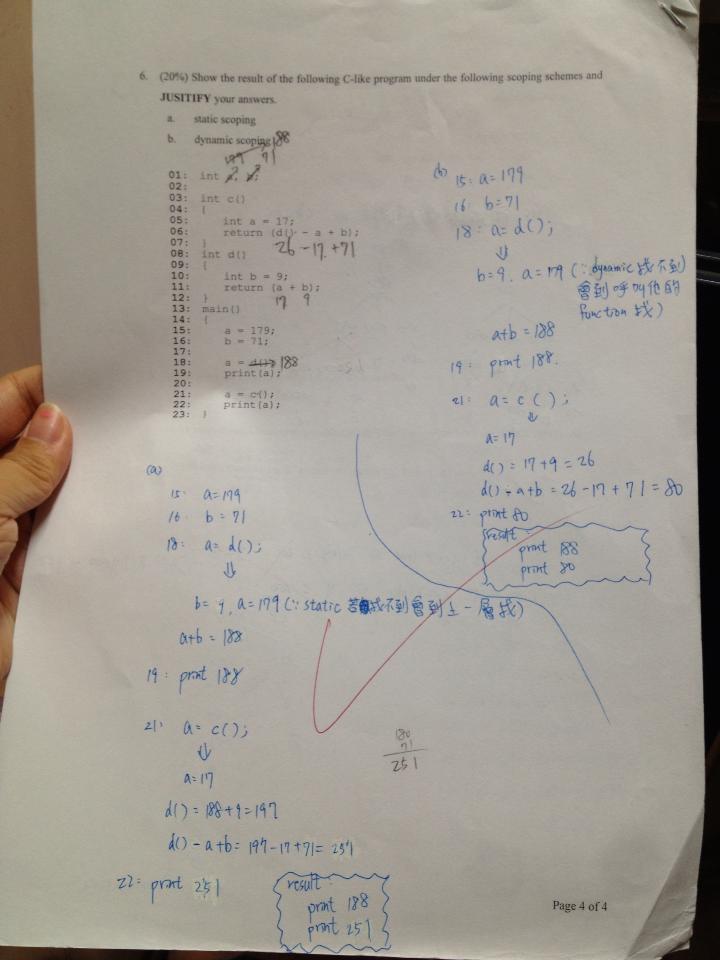 6. (20%) Show the result of the following C-like program under the following scoping schemes and
JUSITIFY your answers.
a. static scoping
b. dynamic scoping 188
179 71
01: int a, b;
02:
03: int c()
04: {
05: int a = 17;
06: return (d() - a + b);
07: }
26 - 17 + 71
08: int d()
09: {
10: int b = 9;
11: return (a + b);
12: }
17 9
13: main()
14: {
15: a = 179;
16: b = 71;
17:
18: a = d(); 188
19: print(a);
20:
21: a = c();
22: print(a);
23: }
(b)
15: a = 179
16: b = 71
18: a = d();
⇓
b = 9, a = 179 (∵ dynamic 找不到
會到呼叫他的
function 找)
a+b = 188
19: print 188.
21: a = c();
⇓
a = 17
d() = 17 + 9 = 26
d() - a + b = 26 - 17 + 71 = 80
22: print 80
result:
print 188
print 80
(a)
15: a = 179
16: b = 71
18: a = d();
⇓
b = 9, a = 179 (∵ static 若找不到會到上一層找)
a+b = 188
19: print 188
21: a = c();
⇓
a = 17
d() = 188 + 9 = 197
d() - a + b = 197 - 17 + 71 = 251
22: print 251
result:
print 188
print 251
180
71
251
Page 4 of 4